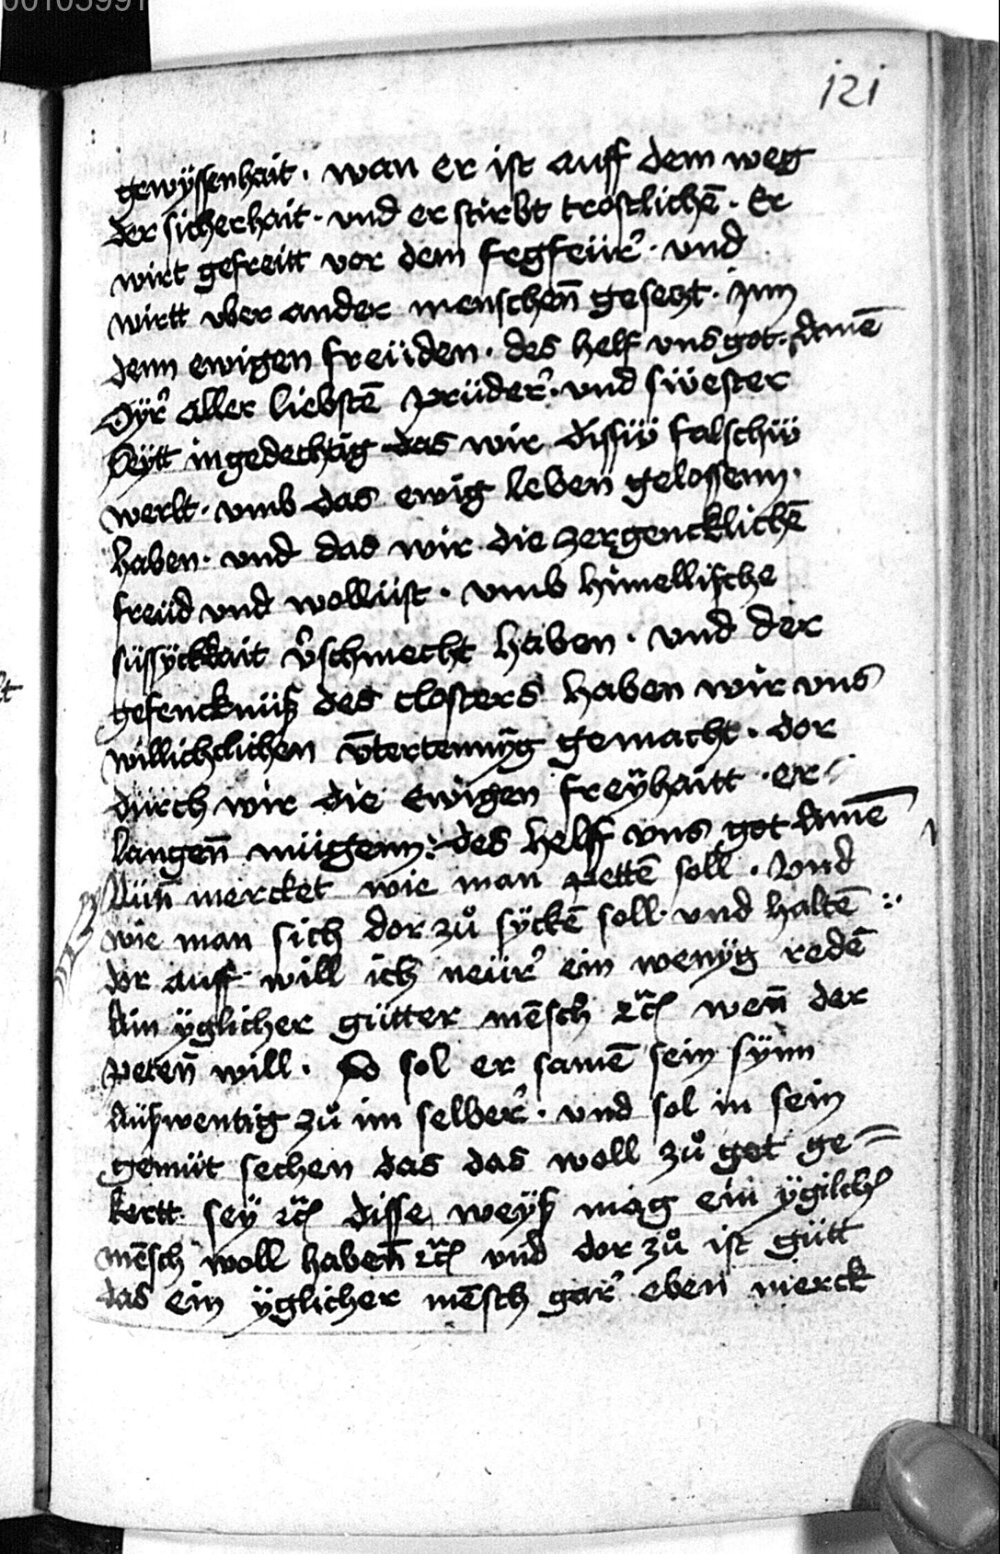 00103991
121
gewÿssenhait · wan er ist auff dem weg
der sicherhait · vnd er stirbt trostlichē · Er
wirt gefreitt vor dem fegfeür · vnd
wirtt vber ander menschen̄ gesetzt · zun
denn ewigen freüden · des helf vns got · Amē
Dÿr aller liebstē prüder · vnd swester
seÿtt ingedechtig das wir dissü falschü
werlt · vmb das ewig leben gelossenn ·
haben · vnd das wir die zergencklichē
freüd vnd wollüst · vmb himellische
süssÿckait v̄schmecht haben · vnd der
gefencknüß des closters haben wir vns
willichlichen v̄tertennÿg gemacht · dor
durch wir die ewigen freÿhaitt · er=
langen̄ mügenn : des helff vns got Amē
Nün̄ mercket wie man pettē soll · vnd
wie man sich dor zů sÿckē soll · vnd haltē :
dor auff will ich neür ein wenÿg redē
Ain ÿglicher gütter mēsch ꝛc wen̄ der
peten̄ will · So sol er samē sein sÿnn
Außwentig zů im selber · vnd sol in sein
gemüt sechen das das woll zů got ge=
kertt sey ꝛc disse weÿß mag ein ÿgilcher
mēsch woll haben̄ ꝛc vnd dor zů ist gütt
das ein ÿglicher mēsch gar eben merck